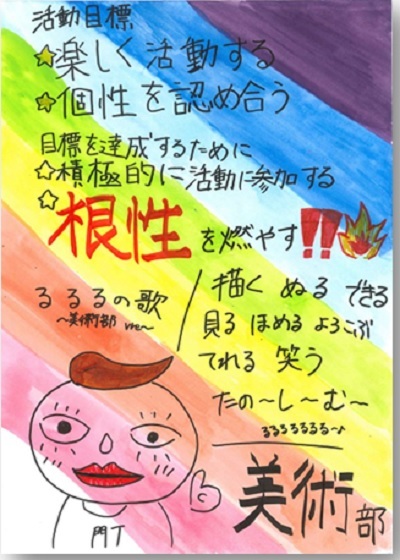 活動目標
☆楽しく活動する
☆個性を認め合う
目標を達成するために
☆積極的に活動に参加する
☆根性を燃やす!!
るるるの歌
〜美術部ver〜
描く ぬる できる
見る ほめる よろこぶ
てれる 笑う
たの〜し〜む〜
るるるるるる〜♪
美術部
門丁